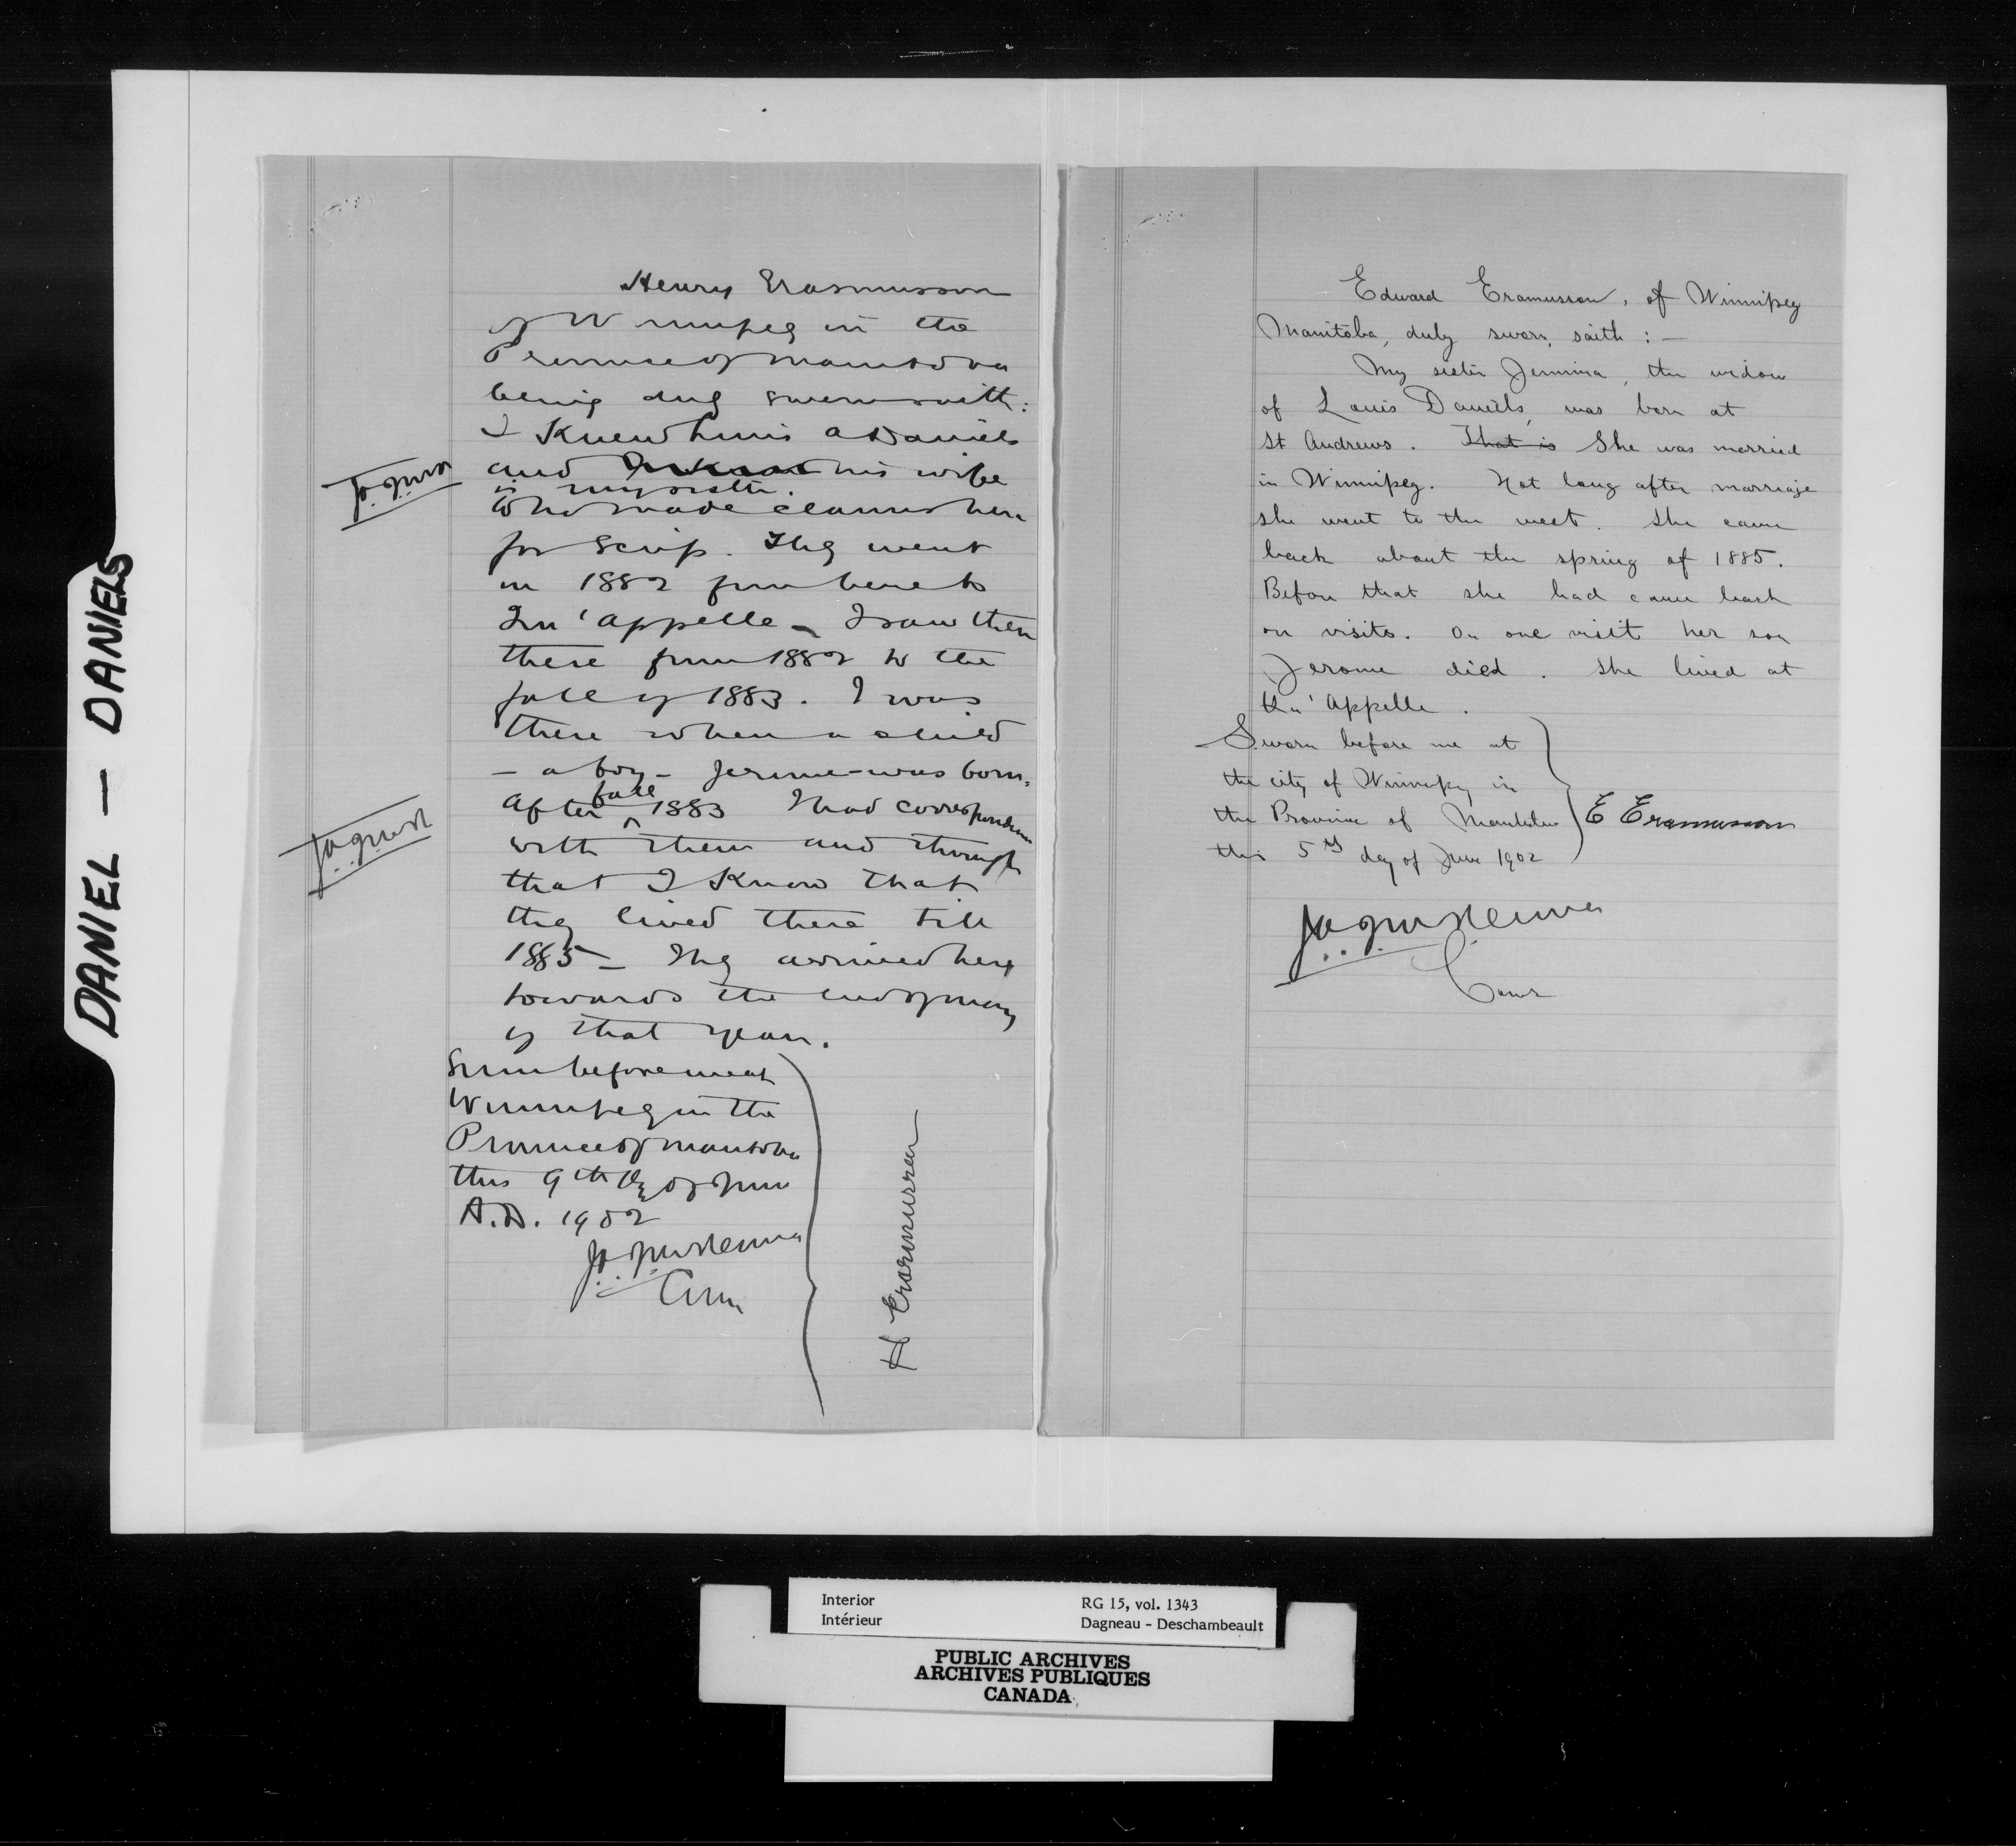 DANIEL — DANIELS
Henry Erasmusson
of Winnipeg in the
Province of Manitoba
being duly sworn saith:
I Knew Louis a Daniels
and his wife
is my sister.
Who made claims here
for Scrip. They went
in 1882 from here to
Qu'appelle – I saw them
there from 1882 to the
fall of 1883. I was
there when a child
– a boy – Jerome – was born.
After fall 1883 I had correspondence
with them and through
that I Know that
they lived there till
1885 – They arrived here
towards the end of May
of that year.
Sworn before me at
Winnipeg in the
Province of Manitoba
this 9th day of June
A.D. 1902
H Erasmussen
Edward Eramusson, of Winnipeg
Manitoba, duly sworn, saith : –
My sister Jemima, the widow
of Louis Daniels, was born at
St Andrews. That is She was married
in Winnipeg. Not long after marriage
she went to the west. She came
back about the spring of 1885.
Before that she had came back
on visits. On one visit her son
Jerome died. She lived at
Qu'Appelle.
Sworn before me at
the city of Winnipeg in
the Province of Manitoba
this 5th day of June 1902
E Erasmusson
Interior
Intérieur
RG 15, vol. 1343
Dagneau - Deschambeault
PUBLIC ARCHIVES
ARCHIVES PUBLIQUES
CANADA